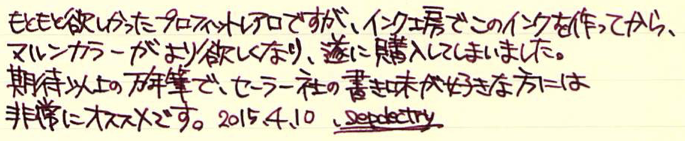 もともと欲しかったプロフィットレアロですが、インク工房でこのインクを作ってから、
マルンカラーがより欲しくなり、遂に購入してしまいました。
期待以上の万年筆で、セーラー社の書き味が好きな方には
非常にオススメです。 2015.4.10